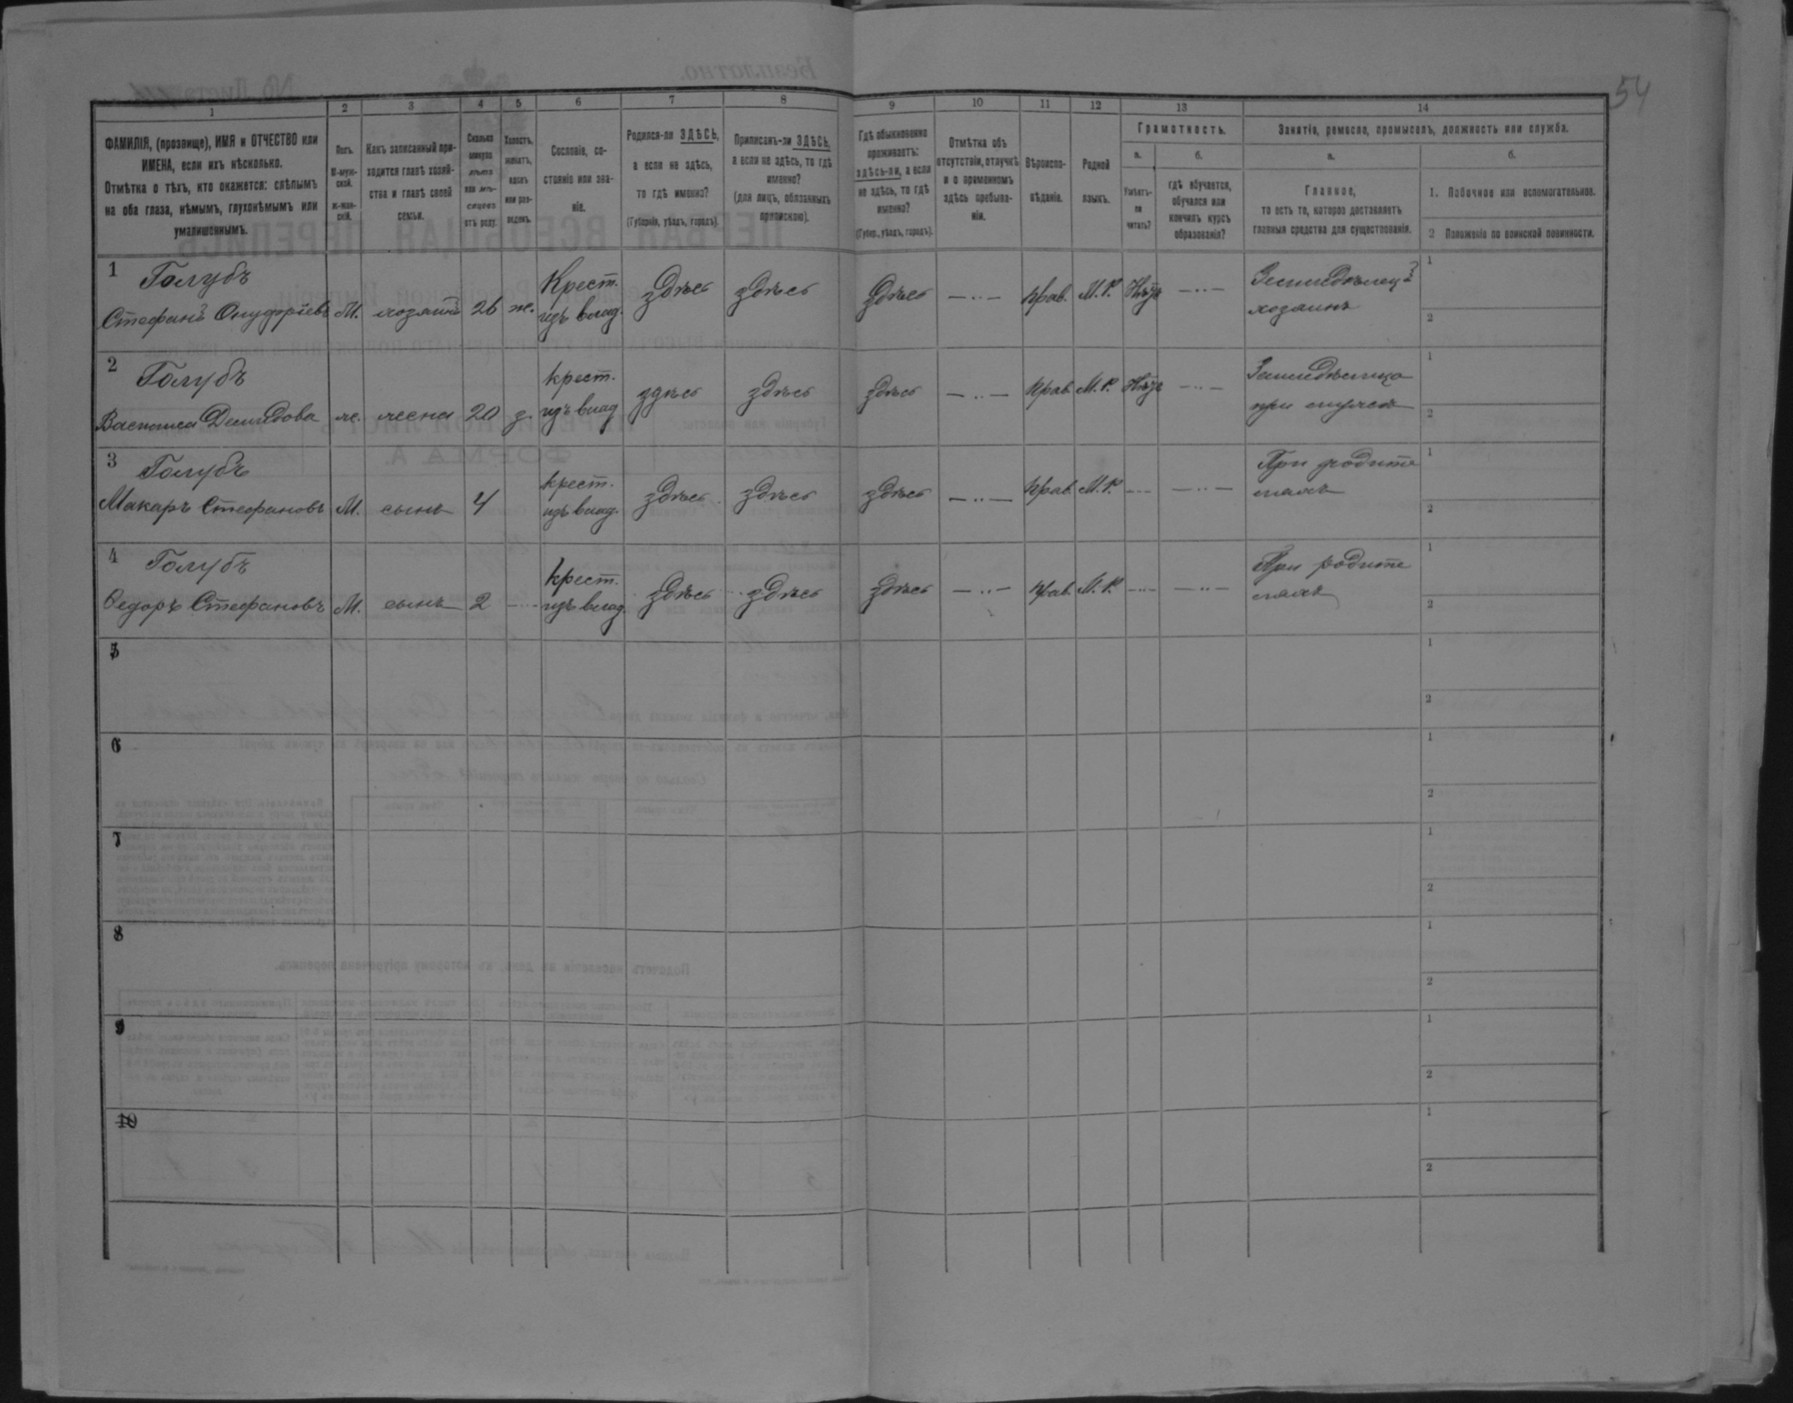 54
1 2 3 4 5 6 7 8 9 10 11 12 13 14
ФАМИЛІЯ, (прозвище), ИМЯ и ОТЧЕСТВО или
ИМЕНА, если ихъ нѣсколько.
Отмѣтка о тѣхъ, кто окажется: слѣпымъ
на оба глаза, нѣмымъ, глухонѣмымъ или
умалишеннымъ.
Полъ.
М-муж-
ской.
Ж-жен-
скій.
Какъ записанный при-
ходится главѣ хозяй-
ства и главѣ своей
семьи.
Сколько
минуло
лѣтъ
или мѣ-
сяцевъ
отъ роду.
Холостъ,
женатъ,
вдовъ
или раз-
веденъ.
Сословіе, со-
стояніе или зва-
ніе.
Родился-ли ЗДѢСЬ,
а если не здѣсь,
то гдѣ именно?
(Губернія, уѣздъ, городъ).
Приписанъ-ли ЗДѢСЬ,
а если не здѣсь, то гдѣ
именно?
(для лицъ, обязанныхъ
припискою).
Гдѣ обыкновенно
проживаетъ:
здѣсь-ли, а если
не здѣсь, то гдѣ
именно?
(Губер., уѣздъ, городъ).
Отмѣтка объ
отсутствіи, отлучкѣ
и о временномъ
здѣсь пребыва-
ніи.
Вѣроиспо-
вѣданіе.
Родной
языкъ.
Грамотность.
а.
Умѣетъ-
ли
читать?
б.
гдѣ обучается,
обучался или
кончилъ курсъ
образованія?
Занятіе, ремесло, промыселъ, должность или служба.
а.
Главное,
то есть то, которое доставляетъ
главныя средства для существованія.
б.
1. Побочное или вспомогательное.
2 Положеніе по воинской повинности.
1 Голубъ
Стефанъ Онуфріевъ М. хозяинъ 26 ж. Крест. изъ влад. здѣсь здѣсь здѣсь — .. — прав. М.Р. Нѣтъ — .. — Земледѣлецъ хозяинъ
1
2
2 Голубъ
Василиса Демидова ж. жена 20 з. крест. изъ влад. здѣсь здѣсь здѣсь — .. — прав. М.Р. Нѣтъ — .. — Земледѣлица при мужѣ
1
2
3 Голубъ
Макаръ Стефановъ М. сынъ 4 крест. изъ влад. здѣсь здѣсь здѣсь — .. — прав. М.Р. — .. — При родителяхъ
1
2
4 Голубъ
Федоръ Стефановъ М. сынъ 2 крест. изъ влад. здѣсь здѣсь здѣсь — .. — прав. М.Р. — .. — При родителяхъ
1
2
5
1
2
6
1
2
7
1
2
8
1
2
9
1
2
10
1
2